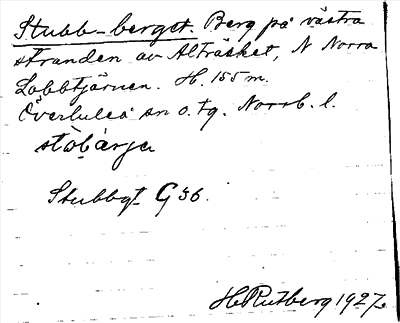 Stubb-berget. Berg på västra
stranden av Alträsket, N Norra
Lobbtjärnen. H. 155 m.
Överluleå sn o. tg. Norrb. l.
stòbárja
Stubbgt G 36.
H. Rutberg 1927.